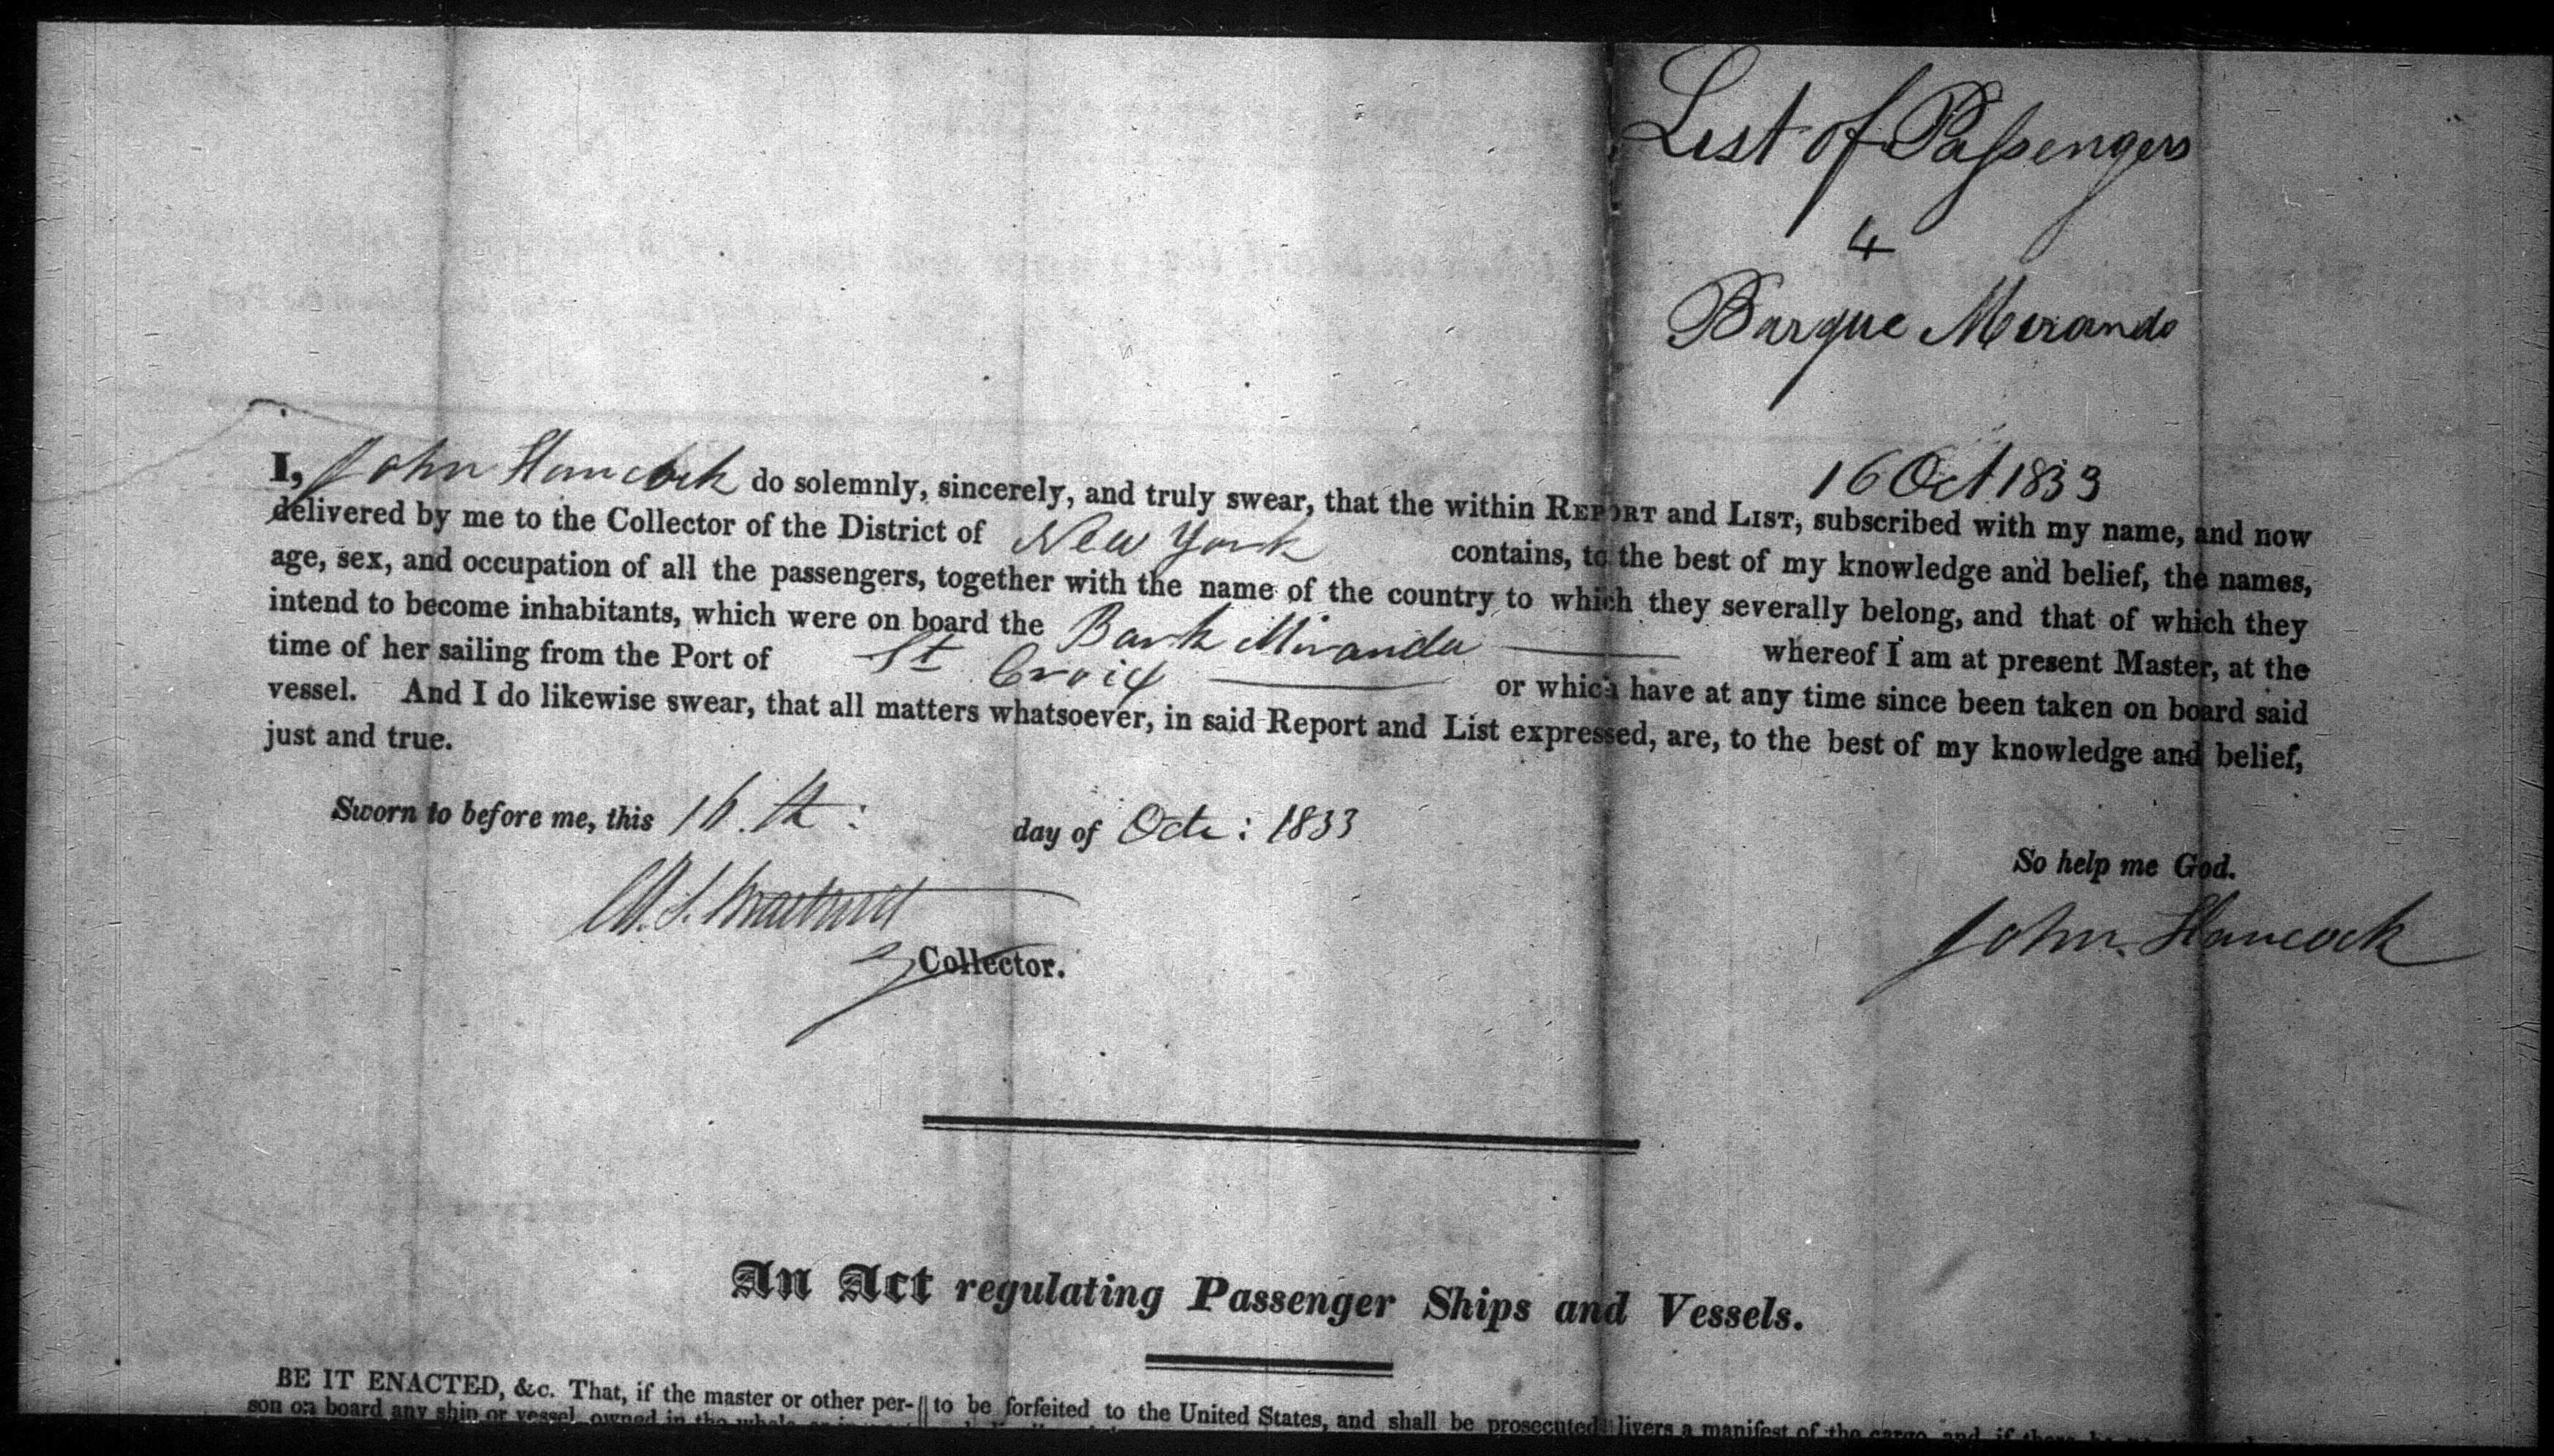 List of Passengers
4
Barque Miranda
16 Oct 1833
I, John Hancock do solemnly, sincerely, and truly swear, that the within REPORT and LIST, subscribed with my name, and now
delivered by me to the Collector of the District of New York contains, to the best of my knowledge and belief, the names,
age, sex, and occupation of all the passengers, together with the name of the country to which they severally belong, and that of which they
intend to become inhabitants, which were on board the Bark Miranda whereof I am at present Master, at the
time of her sailing from the Port of St Croix or which have at any time since been taken on board said
vessel. And I do likewise swear, that all matters whatsoever, in said Report and List expressed, are, to the best of my knowledge and belief,
just and true.
Sworn to before me, this 16.th: day of Octr: 1833
So help me God.
John Hancock
Collector.
An Act regulating Passenger Ships and Vessels.
BE IT ENACTED, &c. That, if the master or other per-
son on board any ship or vessel, owned in the whole
to be forfeited to the United States, and shall be prosecuted
livers a manifest of the cargo, and, if there be